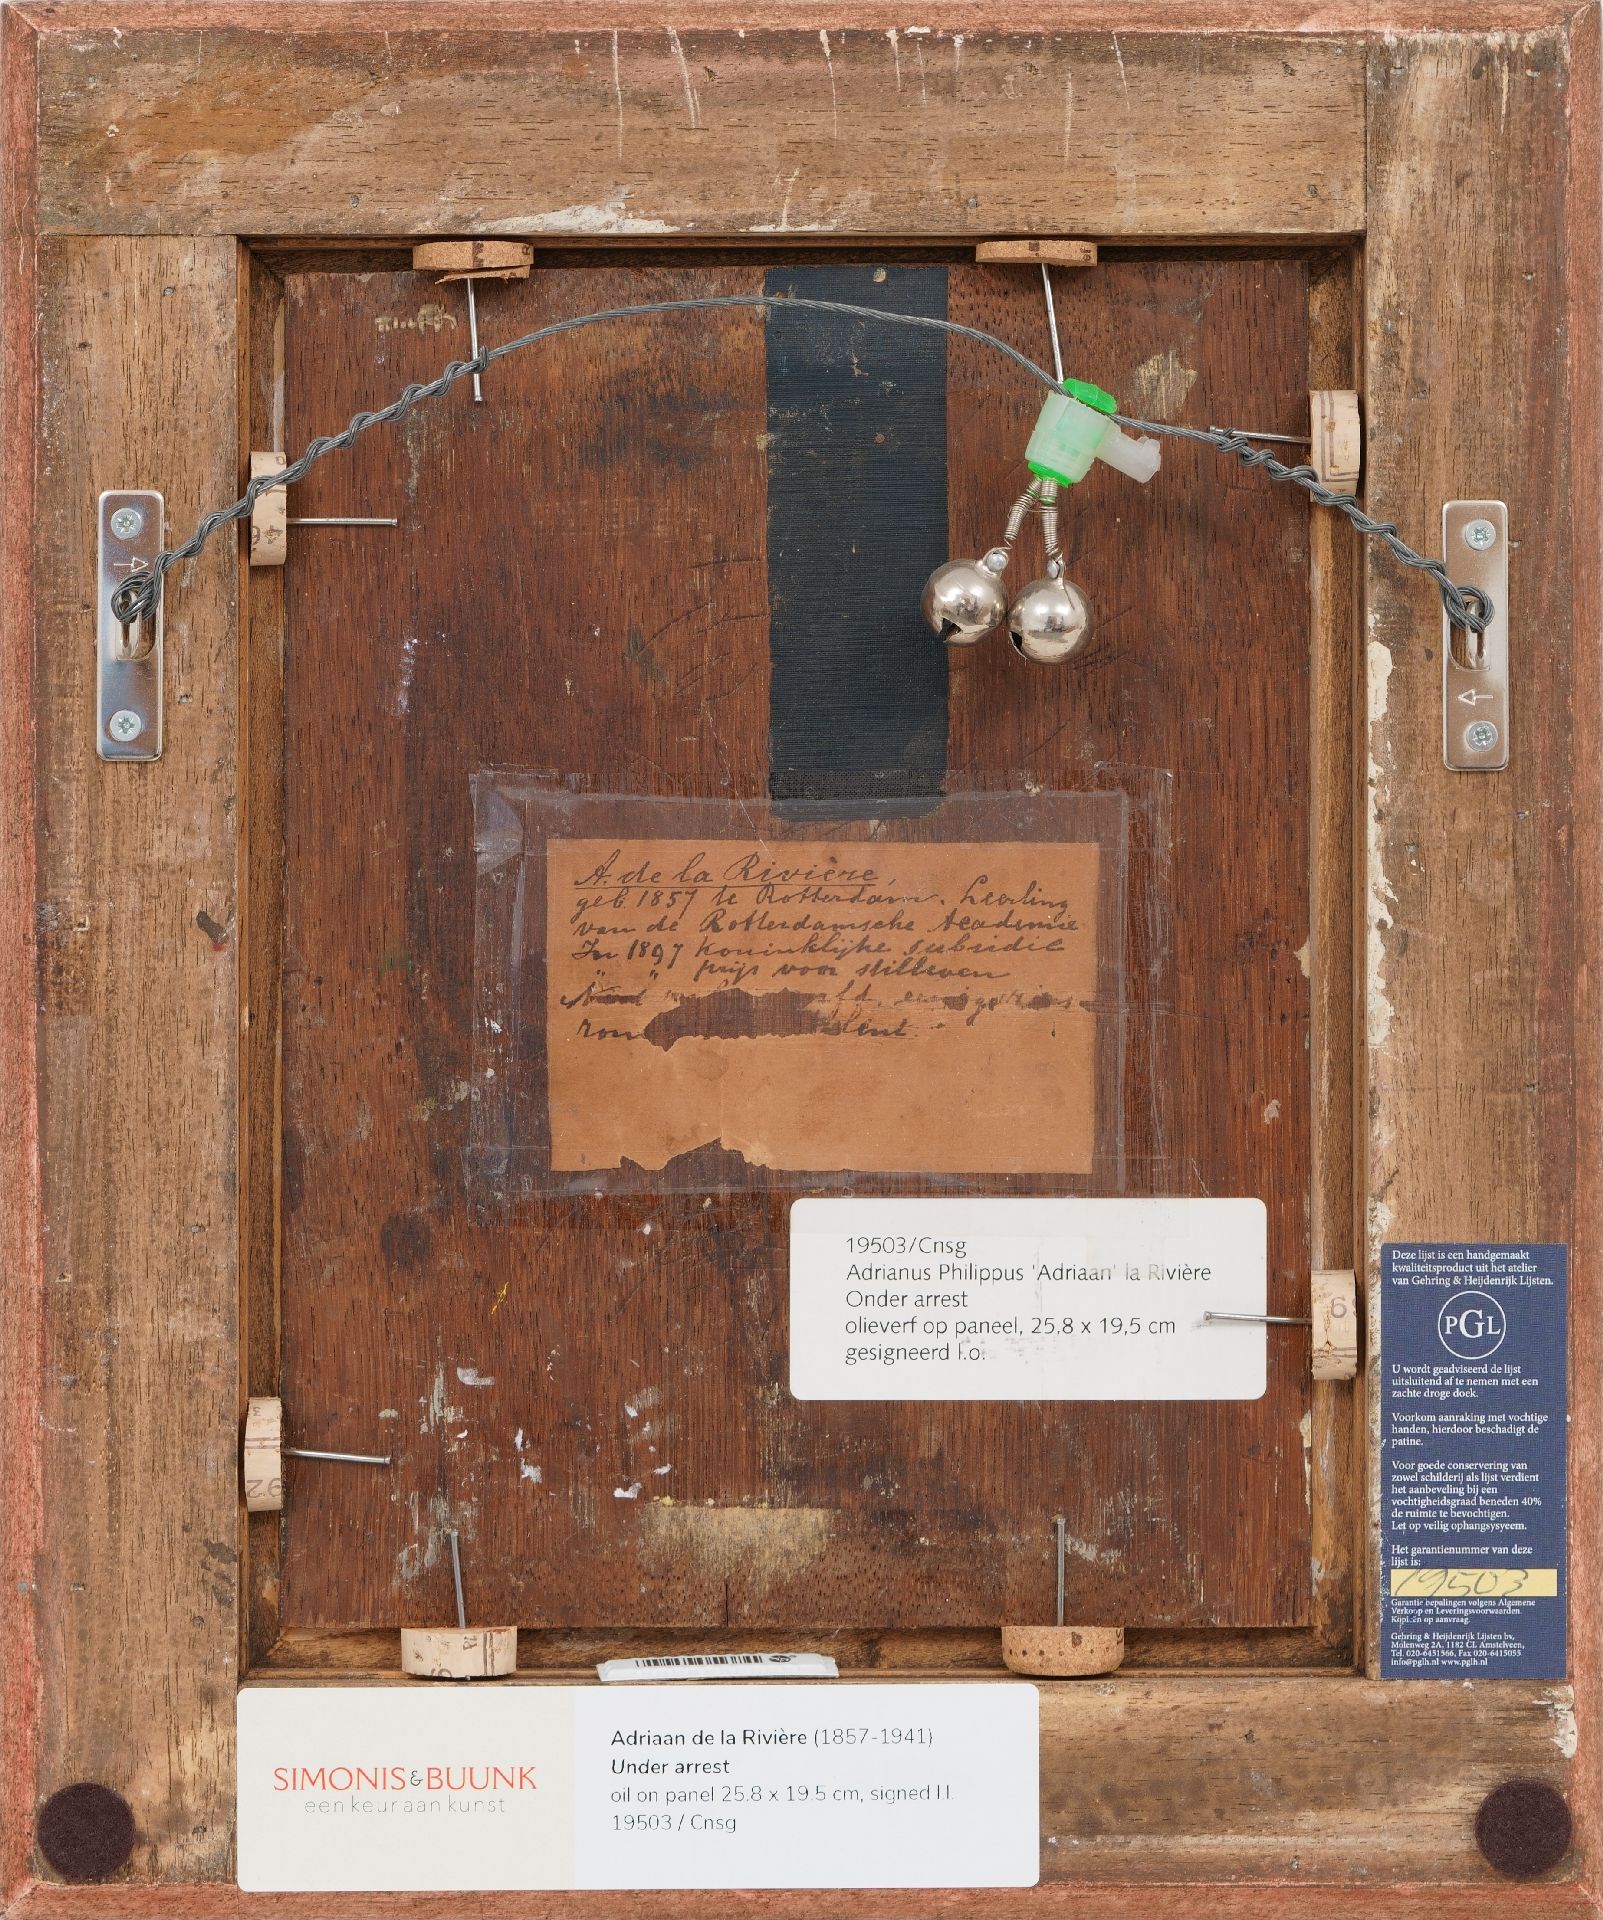 A. de la Rivière,
geb. 1857 te Rotterdam. Leerling
van de Rotterdamsche Academie
In 1897 Koninklijke subsidie
" " prijs voor stilleven
19503/Cnsg
Adrianus Philippus 'Adriaan' la Rivière
Onder arrest
olieverf op paneel, 25,8 x 19,5 cm
gesigneerd l.o.
Deze lijst is een handgemaakt
kwaliteitsproduct uit het atelier
van Gehring & Heijdenrijk Lijsten.
PGL
U wordt geadviseerd de lijst
uitsluitend af te nemen met een
zachte droge doek.
Voorkom aanraking met vochtige
handen, hierdoor beschadigt de
patine.
Voor goede conservering van
zowel schilderij als lijst verdient
het aanbeveling bij een
vochtigheidsgraad beneden 40%
de ruimte te bevochtigen.
Let op veilig ophangsysyeem.
Het garantienummer van deze
lijst is:
19503
Garantie bepalingen volgens Algemene
Verkoop en Leveringsvoorwaarden.
Kopieën op aanvraag.
Gehring & Heijdenrijk Lijsten bv,
Molenweg 2A, 1182 CL Amstelveen,
Tel. 020-6451566, Fax 020-6415055
info@pglh.nl www.pglh.nl
SIMONIS&BUUNK
een keur aan kunst
Adriaan de la Rivière (1857-1941)
Under arrest
oil on panel 25.8 x 19.5 cm, signed l.l.
19503 / Cnsg